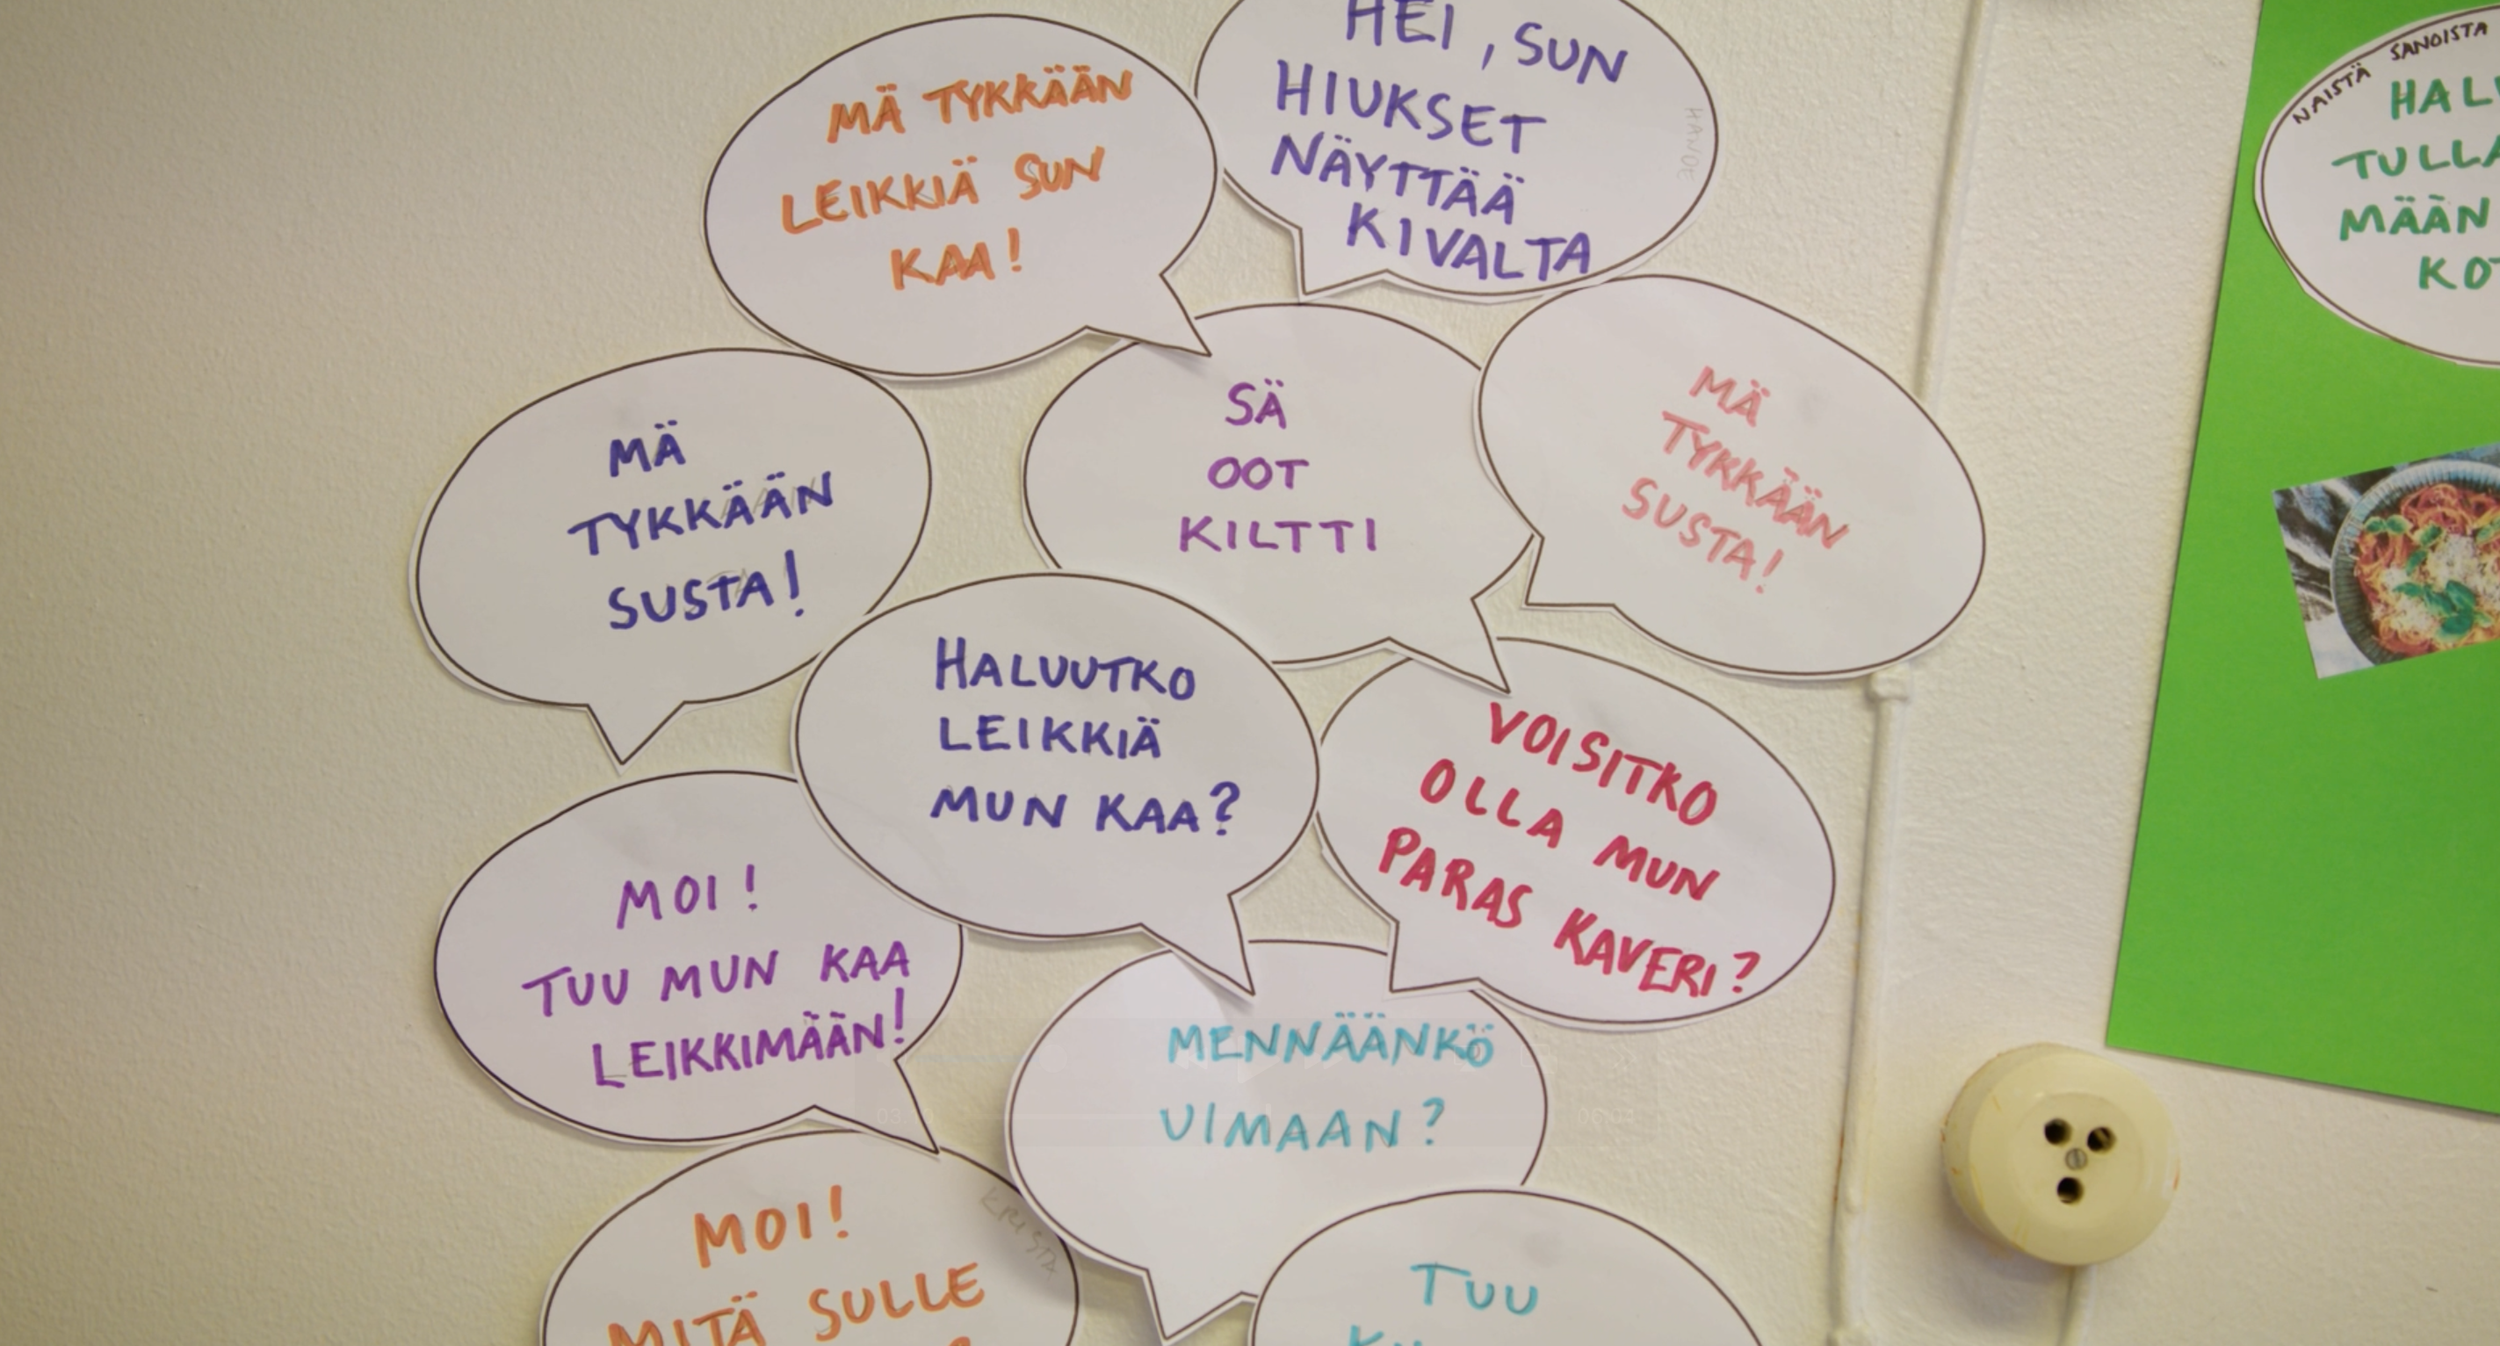 MÄ TYKKÄÄN
LEIKKIÄ SUN
KAA!
HEI, SUN
HIUKSET
NÄYTTÄÄ
KIVALTA
MÄ
TYKKÄÄN
SUSTA!
SÄ
OOT
KILTTI
MÄ
TYKKÄÄN
SUSTA!
HALUUTKO
LEIKKIÄ
MUN KAA?
VOISITKO
OLLA MUN
PARAS KAVERI?
MOI!
TUU MUN KAA
LEIKKIMÄÄN!
MENNÄÄNKÖ
UIMAAN?
MOI!
MITÄ SULLE
KRISTA
TUU
NAISTÄ SANOISTA
TULLA
MÄÄN